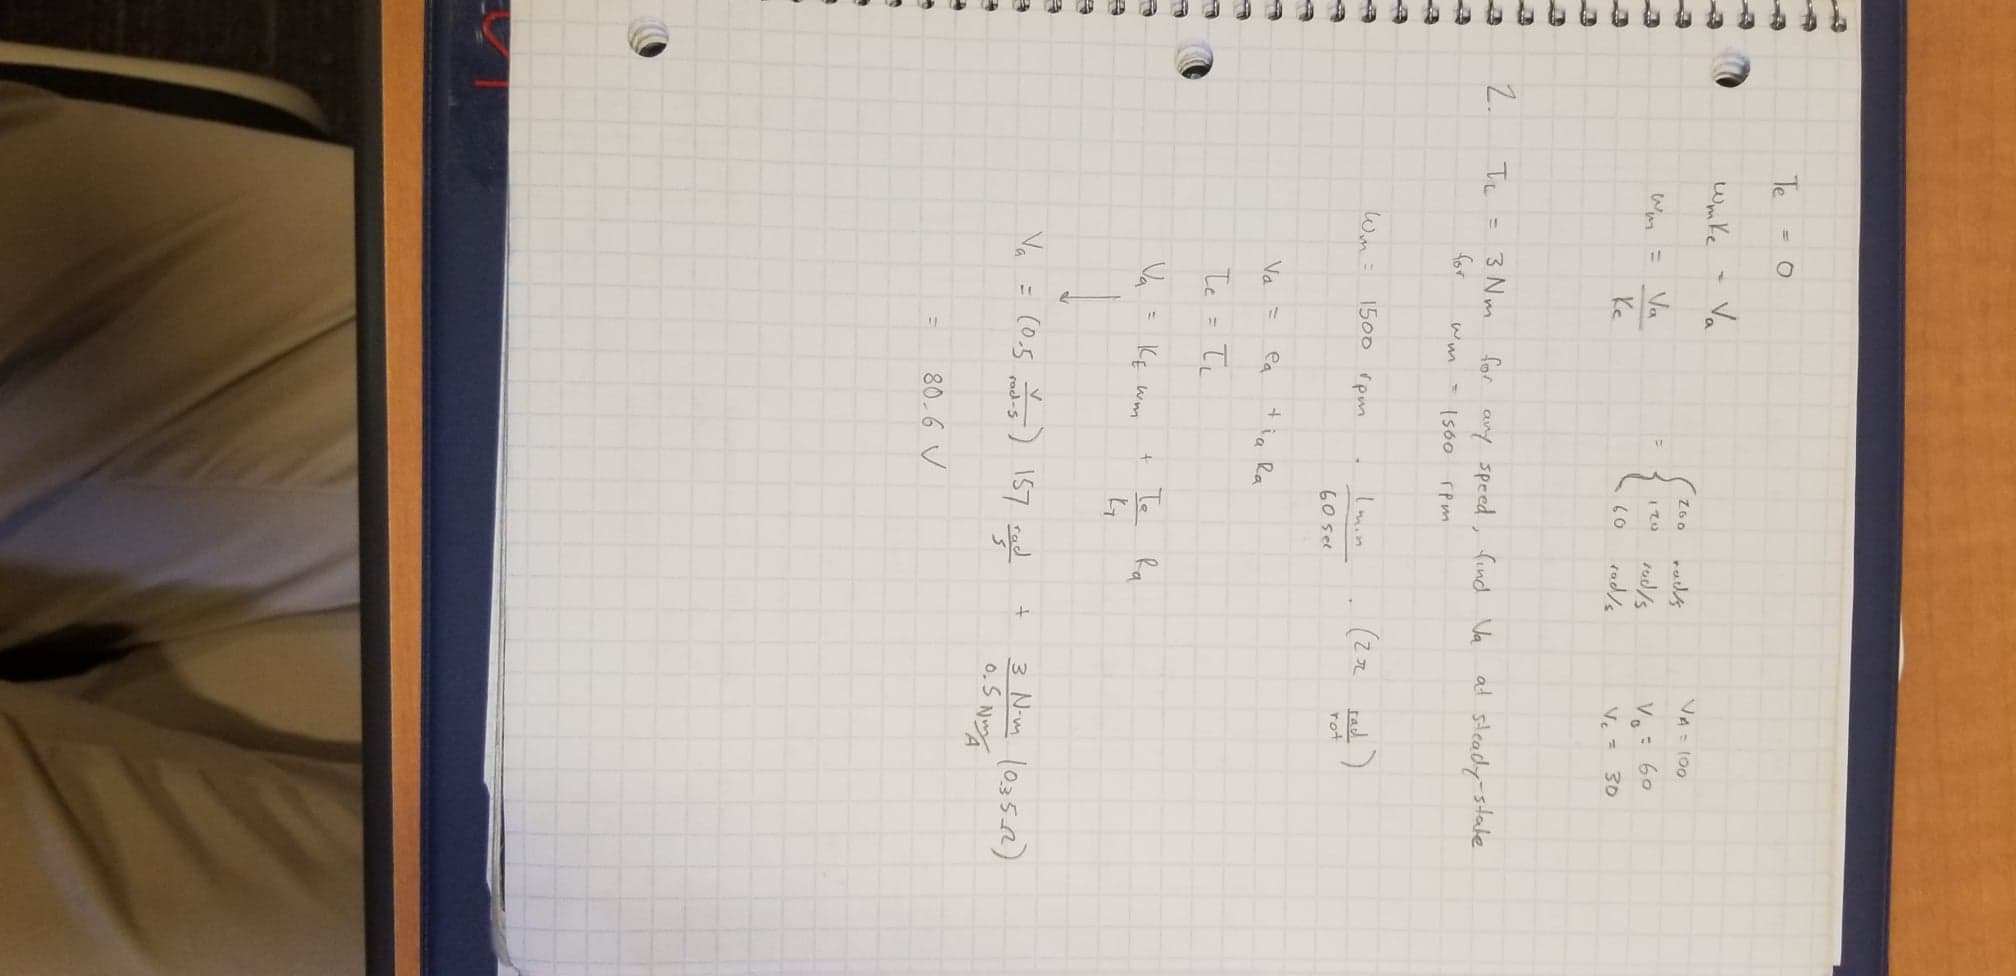 Te = 0
ωmKe = Va
ωm = Va/Ke = { 200 rad/s VA = 100
120 rad/s VB = 60
60 rad/s Vc = 30
2. TL = 3 Nm for any speed, find Va at steady-state
for ωm = 1500 rpm
ωm = 1500 rpm · 1 min/60 sec · (2π rad/rot)
Va = ea + ia Ra
Te = TL
Va = KE ωm + Te/KT Ra
↓
Va = (0.5 V/rad-s) 157 rad/s + 3 N-m/0.5 Nm/A (0.35Ω)
= 80.6 V